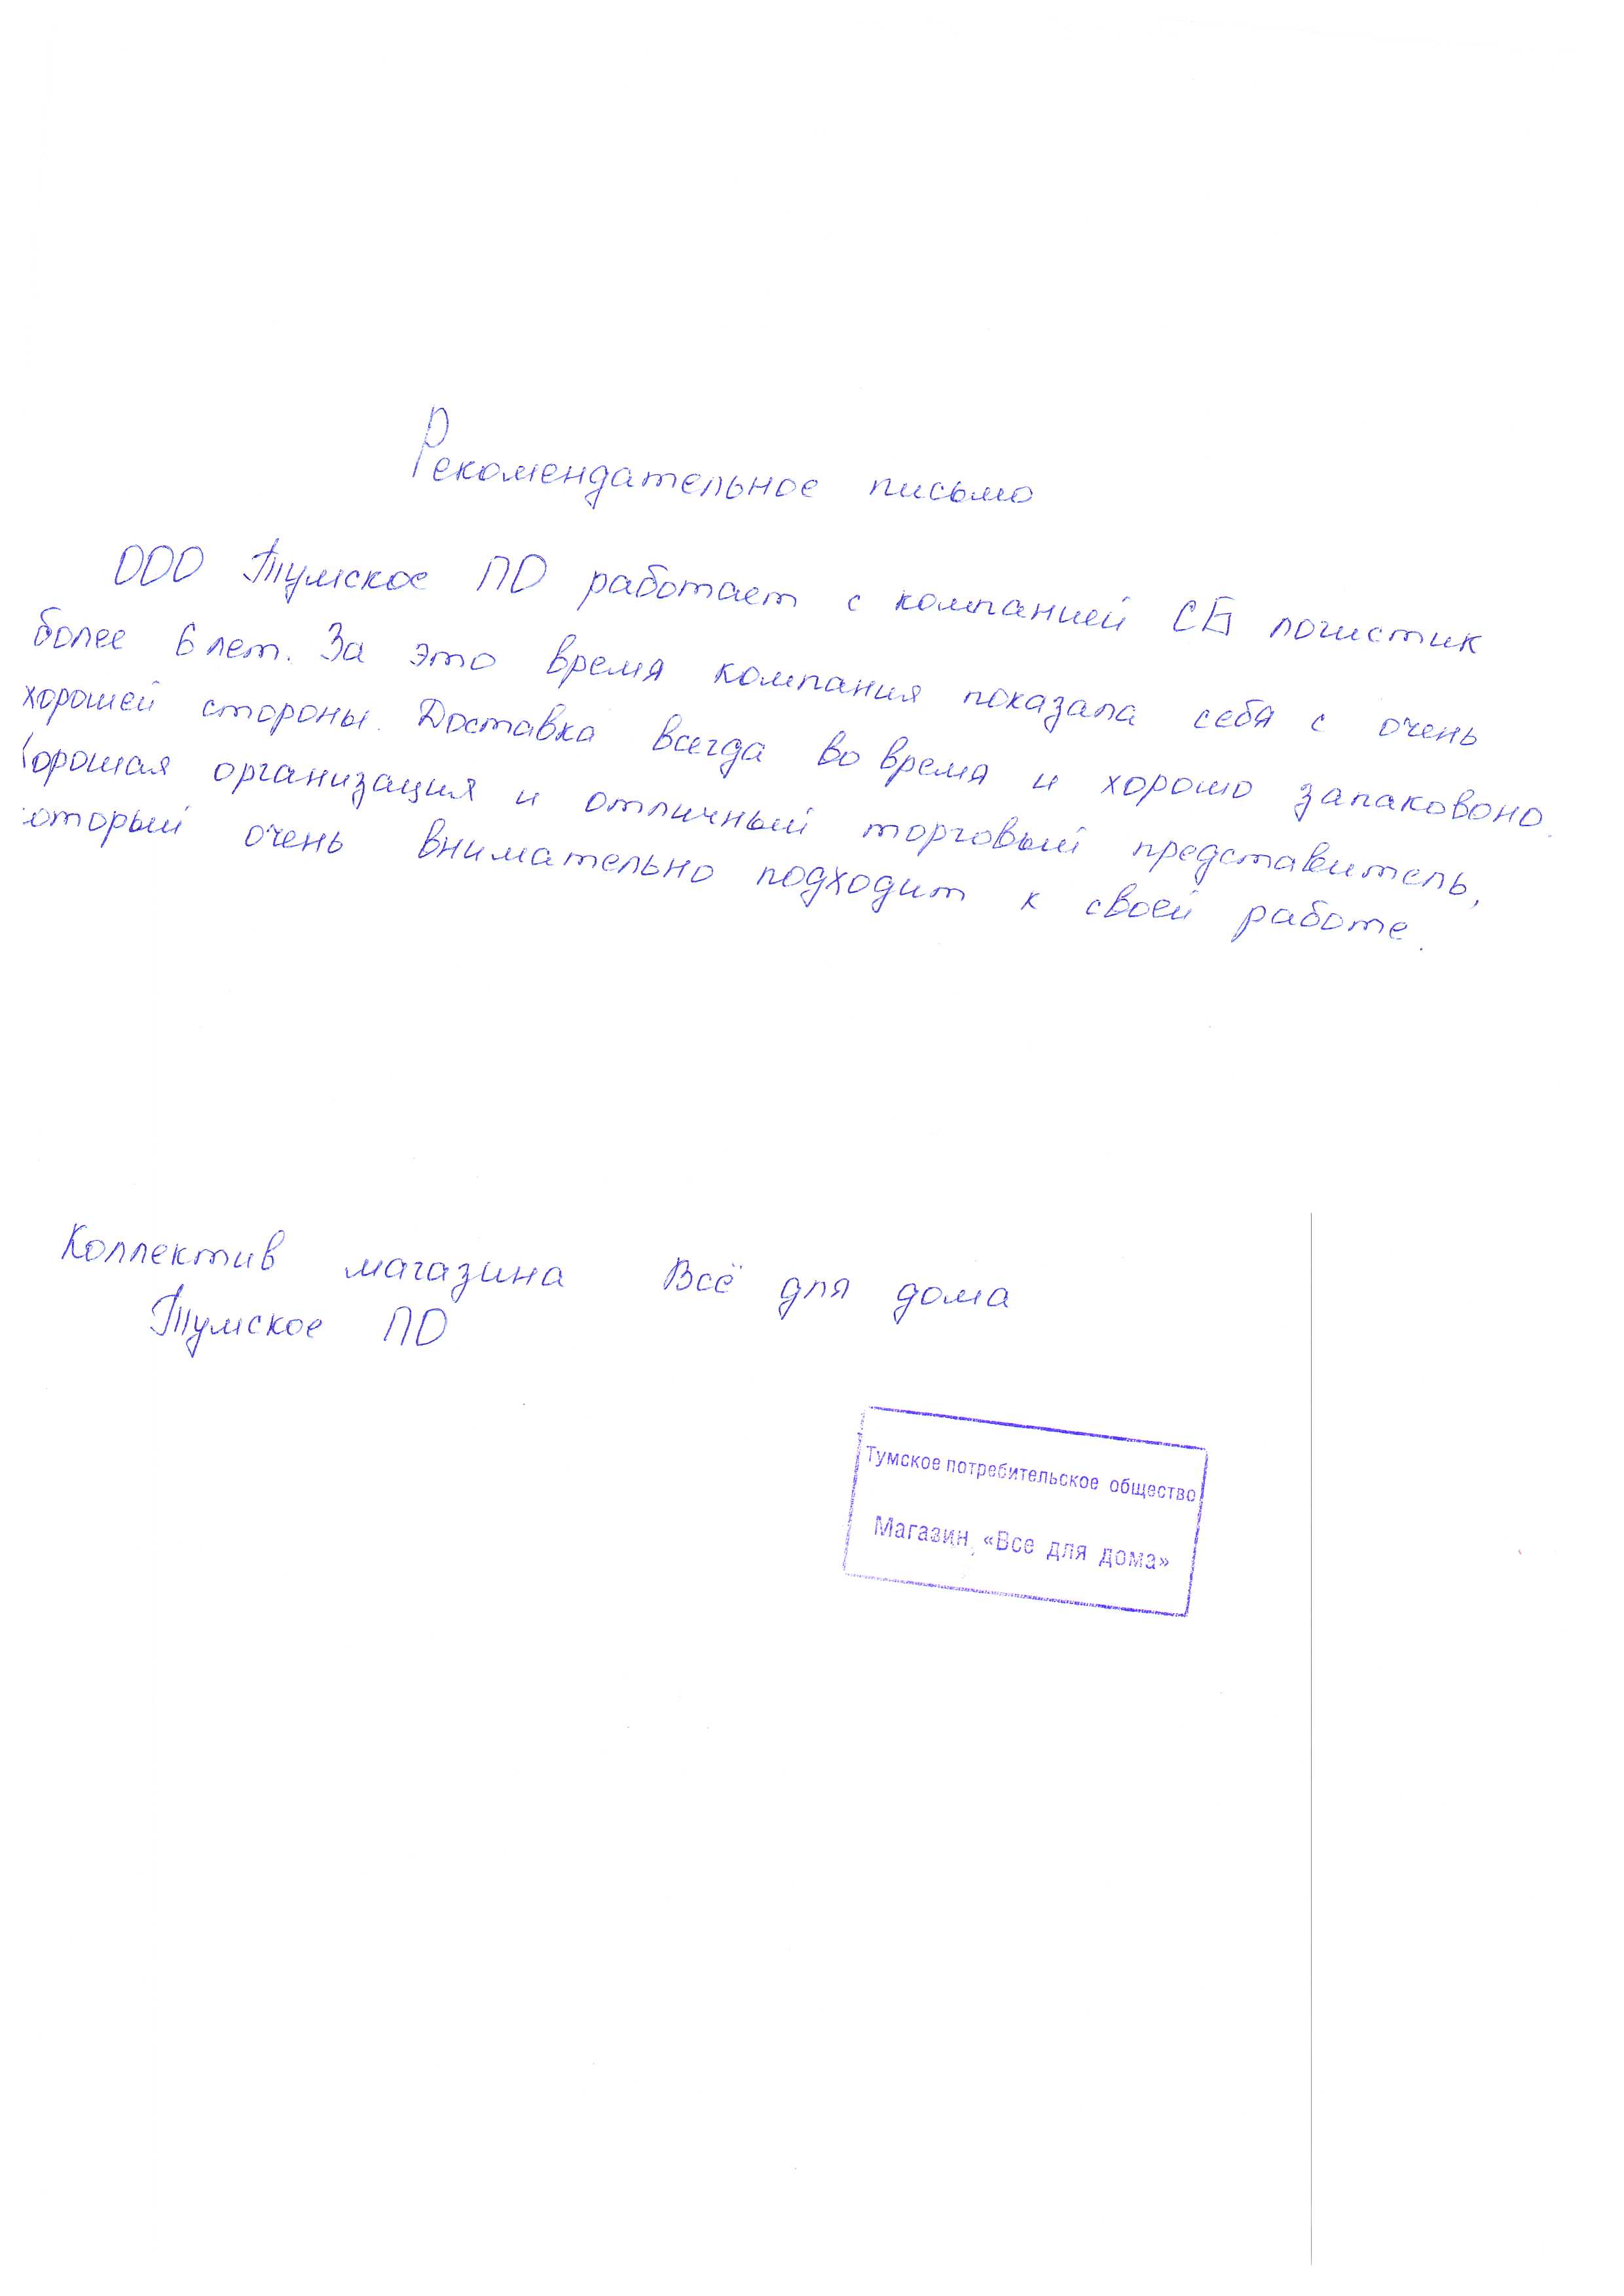 Рекомендательное письмо
ООО Тумское ПО работает с компанией СБ логистик
более 6 лет. За это время компания показала себя с очень
хорошей стороны. Доставка всегда во время и хорошо запаковоно.
Хорошая организация и отличный торговый представитель,
который очень внимательно подходит к своей работе.
Коллектив магазина Всё для дома
Тумское ПО
Тумское потребительское общество
Магазин «Все для дома»